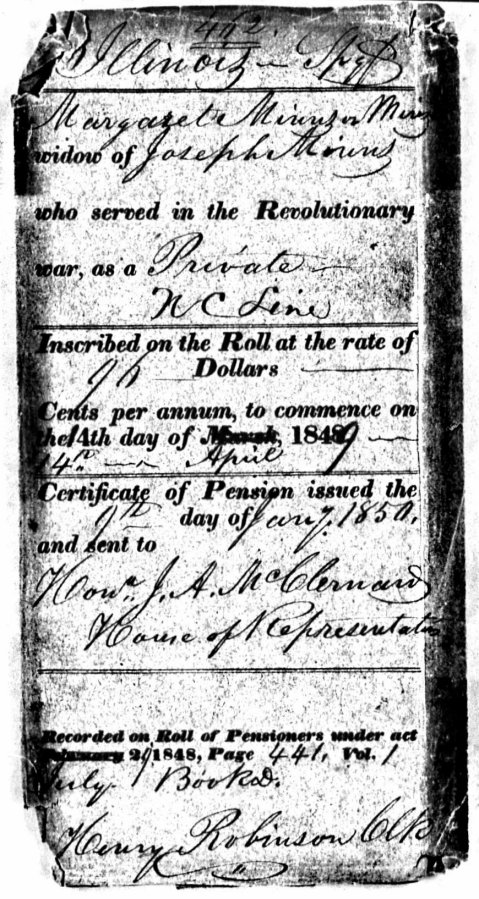 402.
Illinois – Spgf
Margaret Minns or Mins
widow of Joseph Minns
who served in the Revolutionary
war, as a Private –
N C Line
Inscribed on the Roll at the rate of
96 Dollars
Cents per annum, to commence on
the 14th day of March, 1849
14th April
Certificate of Pension issued the
9th day of Jany. 1850,
and sent to
Hon. J. A. McClernand
House of Representatives
Recorded on Roll of Pensioners under act
February 29, 1848, Page 441, Vol. 1
July Booked.
Henry Robinson Clk